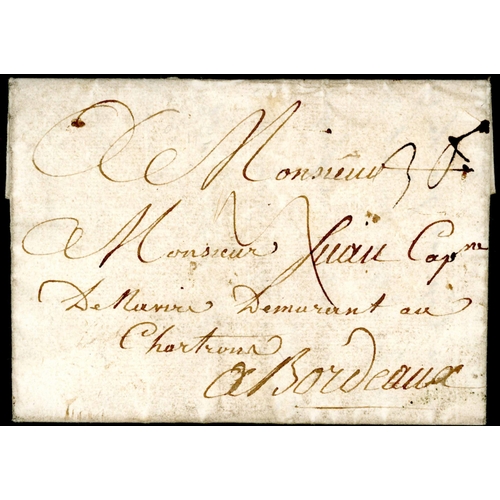 A Monsieur
Monsieur Juan Cap.ne
De Navire Demurant au
Chartrons
a Bordeaux